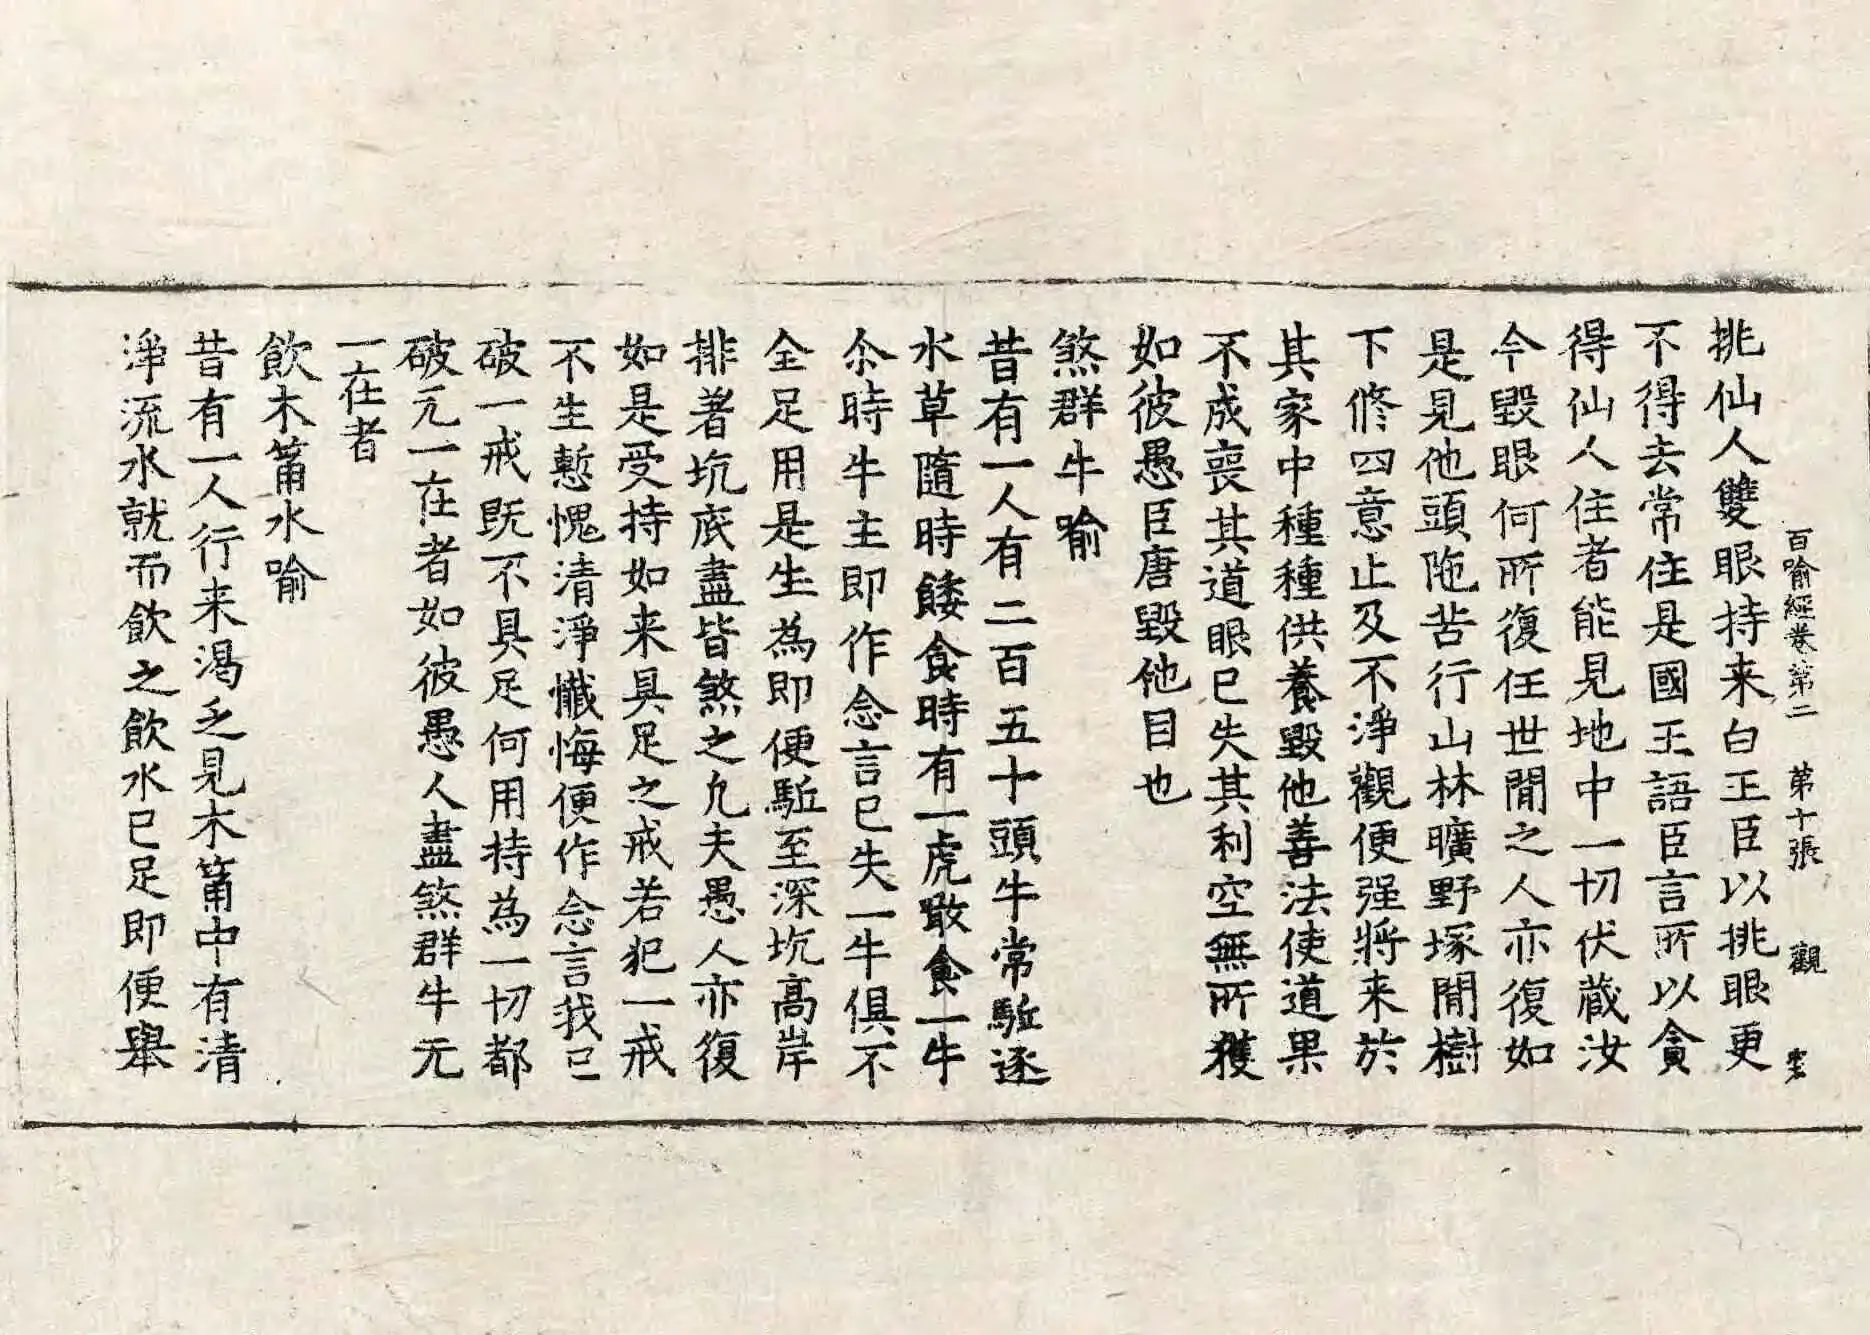 百喻經卷第二 第十張 觀
挑仙人雙眼持来白王臣以挑眼更
不得去常住是國王語臣言所以貪
得仙人住者能見地中一切伏藏汝
今毀眼何所復任世間之人亦復如
是見他頭陁苦行山林曠野塚間樹
下修四意止及不淨觀便强將来於
其家中種種供養毀他善法使道果
不成喪其道眼已失其利空無所獲
如彼愚臣唐毀他目也
煞群牛喻
昔有一人有二百五十頭牛常駈逐
水草隨時餧食時有一虎噉食一牛
尒時牛主即作念言已失一牛俱不
全足用是牛為即便駈至深坑高岸
排著坑底盡皆煞之凢夫愚人亦復
如是受持如来具足之戒若犯一戒
不生慙愧清淨懺悔便作念言我已
破一戒既不具足何用持為一切都
破元一在者如彼愚人盡煞群牛元
一在者
飲木筩水喻
昔有一人行来渴乏見木筩中有清
淨流水就而飲之飲水已足即便舉